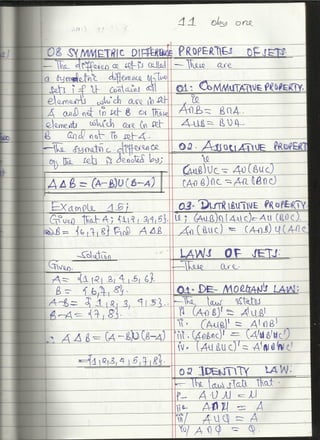 11 oby one
08 SYMMETRIC DIFFERENCE
- The difference set is called
a symmetric difference of two
sets if it contains all
elements which are in set
A and not in set B or those
elements which are in set
B and not in set A.
- The symetric difference
of the sets is denoted by;
A Δ B = (A-B)U(B-A)
Example 1.5;
Given that A; {1,2,3,4,5,6}
B= {6,7,8} Find A Δ B
Solution
Given.
A = {1,2,3,4,5,6}
B = {6,7,8}.
A-B = {1,2,3,4,5}.
B-A = {7,8}.
∴ A Δ B = (A-B)U(B-A)
={1,2,3,4,5,7,8}.
PROPERTIES OF SETS
- These are
01: COMMUTATIVE PROPERTY.
ie
A∩B = B∩A.
AUB = BUA.
02. ASSOCIATIVE PROPERTY
ie
(AUB)UC = AU(BUC)
(A∩B)∩C = A∩(B∩C)
03. DISTRIBUTIVE PROPERTY
(AUB)∩(AUC)=AU(B∩C)
A∩(BUC) = (A∩B)U(A∩C
LAWS OF SETS.
- These are.
01. DE-MORGAN'S LAW:
- The law states
i. (A∩B)' = A'UB'
ii. (AUB)' = A'∩B'
iii. (A∩B∩C)' = (A'UB'UC')
iv. (AUBUC)' = A'∩B'∩C'
02 IDENTITY LAW.
- The law stat that.
i- A U U = U
ii- A∩U = A
iii/ A U Φ = A
iv/ A ∩ Φ = Φ